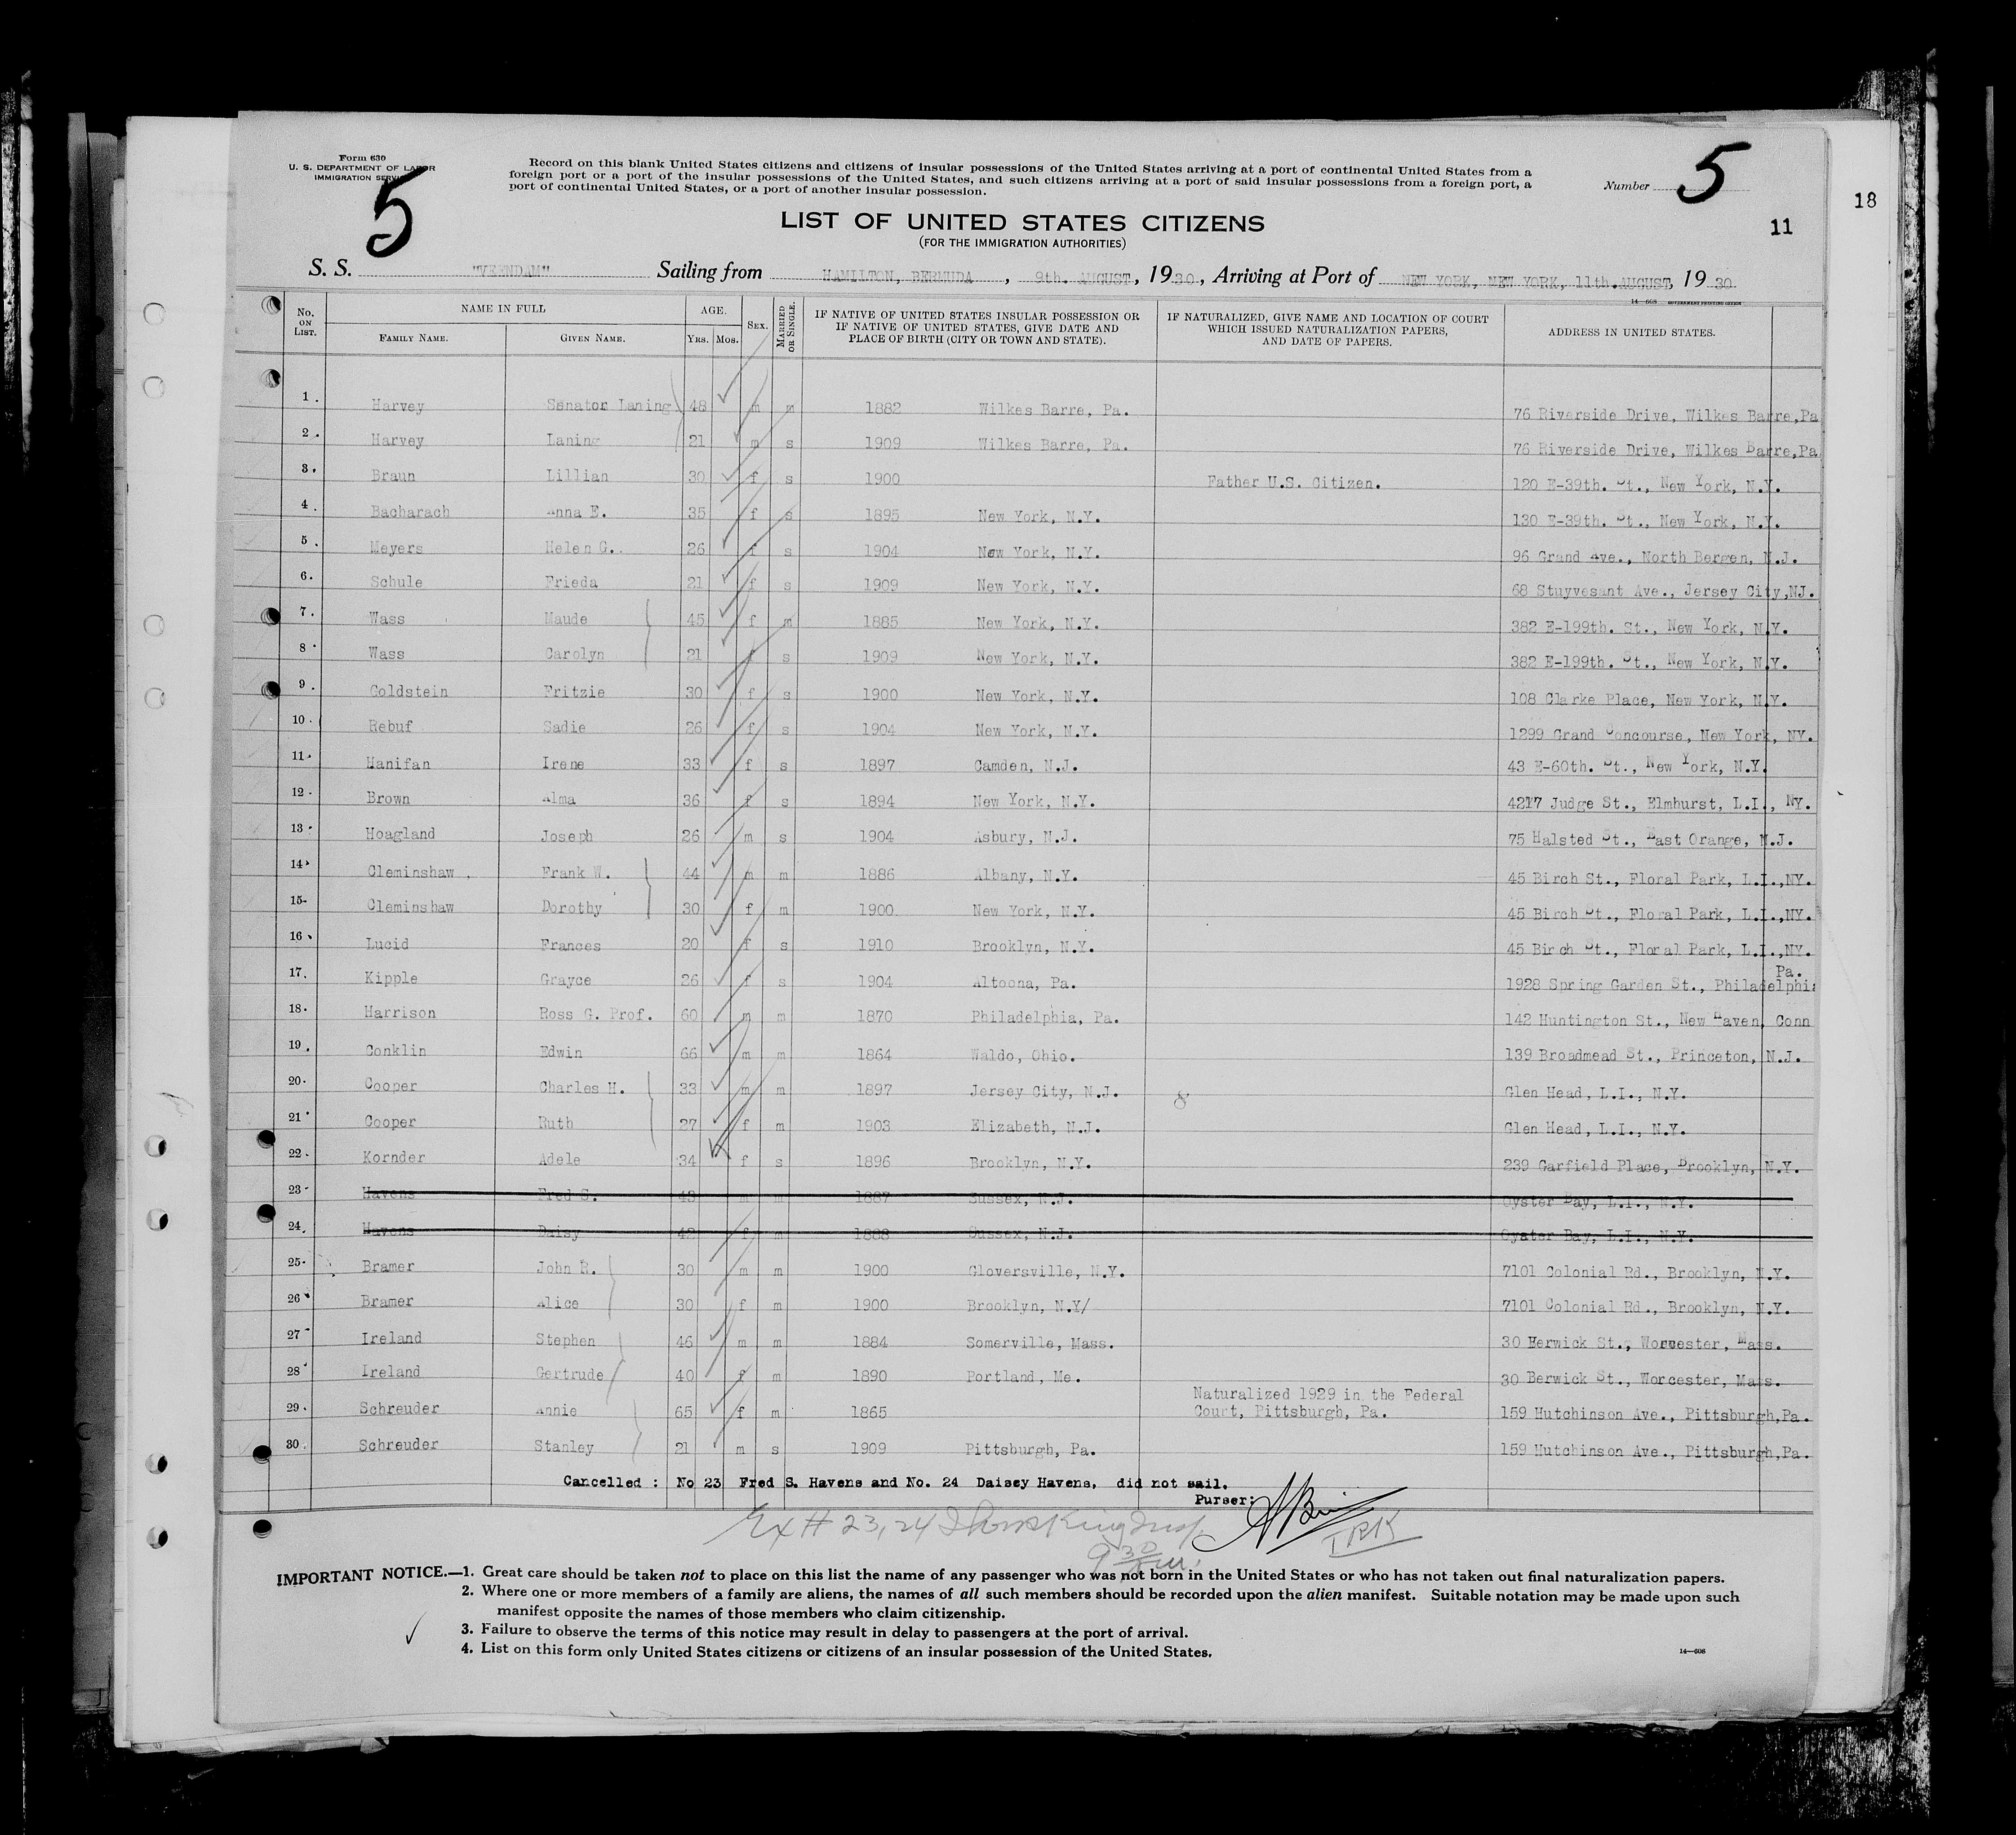 Form 630
U. S. DEPARTMENT OF LABOR
IMMIGRATION SERVICE
5
Record on this blank United States citizens and citizens of insular possessions of the United States arriving at a port of continental United States from a
foreign port or a port of the insular possessions of the United States, and such citizens arriving at a port of said insular possessions from a foreign port, a
port of continental United States, or a port of another insular possession.
Number 5
18
11
LIST OF UNITED STATES CITIZENS
(FOR THE IMMIGRATION AUTHORITIES)
S. S. "VEENDAM" Sailing from HAMILTON, BERMUDA, 9th. AUGUST, 1930, Arriving at Port of NEW YORK, NEW YORK, 11th.AUGUST, 1930
14—608 GOVERNMENT PRINTING OFFICE
No. ON LIST. NAME IN FULL AGE. SEX. MARRIED OR SINGLE. IF NATIVE OF UNITED STATES INSULAR POSSESSION OR IF NATIVE OF UNITED STATES, GIVE DATE AND PLACE OF BIRTH (CITY OR TOWN AND STATE). IF NATURALIZED, GIVE NAME AND LOCATION OF COURT WHICH ISSUED NATURALIZATION PAPERS, AND DATE OF PAPERS. ADDRESS IN UNITED STATES.
FAMILY NAME. GIVEN NAME. YRS. MOS.
1. Harvey Senator Laning 48 m m 1882 Wilkes Barre, Pa. 76 Riverside Drive, Wilkes Barre,Pa
2. Harvey Laning 21 m s 1909 Wilkes Barre, Pa. 76 Riverside Drive, Wilkes Barre,Pa
3. Braun Lillian 30 f s 1900 Father U.S. Citizen. 120 E-39th. St., New York, N.Y.
4. Bacharach Anna E. 35 f s 1895 New York, N.Y. 130 E-39th. St., New York, N.Y.
5. Meyers Helen G. 26 f s 1904 New York, N.Y. 96 Grand Ave., North Bergen, N.J.
6. Schule Frieda 21 f s 1909 New York, N.Y. 68 Stuyvesant Ave., Jersey City,NJ.
7. Wass Maude 45 f m 1885 New York, N.Y. 382 E-199th. St., New York, N.Y.
8. Wass Carolyn 21 f s 1909 New York, N.Y. 382 E-199th. St., New York, N.Y.
9. Goldstein Fritzie 30 f s 1900 New York, N.Y. 108 Clarke Place, New York, N.Y.
10. Rebuf Sadie 26 f s 1904 New York, N.Y. 1299 Grand Concourse, New York, NY.
11. Hanifan Irene 33 f s 1897 Camden, N.J. 43 E-60th. St., New York, N.Y.
12. Brown Alma 36 f s 1894 New York, N.Y. 4217 Judge St., Elmhurst, L.I., NY.
13. Hoagland Joseph 26 m s 1904 Asbury, N.J. 75 Halsted St., East Orange, N.J.
14. Cleminshaw Frank W. 44 m m 1886 Albany, N.Y. 45 Birch St., Floral Park, L.I.,NY.
15. Cleminshaw Dorothy 30 f m 1900 New York, N.Y. 45 Birch St., Floral Park, L.I.,NY.
16. Lucid Frances 20 f s 1910 Brooklyn, N.Y. 45 Birch St., Floral Park, L.I.,NY.
17. Kipple Grayce 26 f s 1904 Altoona, Pa. 1928 Spring Garden St., Philadelphia Pa.
18. Harrison Ross G. Prof. 60 m m 1870 Philadelphia, Pa. 142 Huntington St., New Haven, Conn
19. Conklin Edwin 66 m m 1864 Waldo, Ohio. 139 Broadmead St., Princeton, N.J.
20. Cooper Charles H. 33 m m 1897 Jersey City, N.J. 8 Glen Head, L.I., N.Y.
21. Cooper Ruth 27 f m 1903 Elizabeth, N.J. Glen Head, L.I., N.Y.
22. Kornder Adele 34 f s 1896 Brooklyn, N.Y. 239 Garfield Place, Brooklyn, N.Y.
23. Havens Fred S. 43 m m 1887 Sussex, N.J. Oyster Bay, L.I., N.Y.
24. Havens Daisy 42 f m 1888 Sussex, N.J. Oyster Bay, L.I., N.Y.
25. Bramer John R. 30 m m 1900 Gloversville, N.Y. 7101 Colonial Rd., Brooklyn, N.Y.
26. Bramer Alice 30 f m 1900 Brooklyn, N.Y/ 7101 Colonial Rd., Brooklyn, N.Y.
27. Ireland Stephen 46 m m 1884 Somerville, Mass. 30 Berwick St., Worcester, Mass.
28. Ireland Gertrude 40 f m 1890 Portland, Me. 30 Berwick St., Worcester, Mass.
29. Schreuder Annie 65 f m 1865 Naturalized 1929 in the Federal Court, Pittsburgh, Pa. 159 Hutchinson Ave., Pittsburgh,Pa.
30. Schreuder Stanley 21 m s 1909 Pittsburgh, Pa. 159 Hutchinson Ave., Pittsburgh,Pa.
Cancelled : No 23 Fred S. Havens and No. 24 Daisey Havens, did not sail.
Purser:
Ex # 23, 24
9 30
IMPORTANT NOTICE.—1. Great care should be taken not to place on this list the name of any passenger who was not born in the United States or who has not taken out final naturalization papers.
2. Where one or more members of a family are aliens, the names of all such members should be recorded upon the alien manifest. Suitable notation may be made upon such
manifest opposite the names of those members who claim citizenship.
3. Failure to observe the terms of this notice may result in delay to passengers at the port of arrival.
4. List on this form only United States citizens or citizens of an insular possession of the United States.
14—608